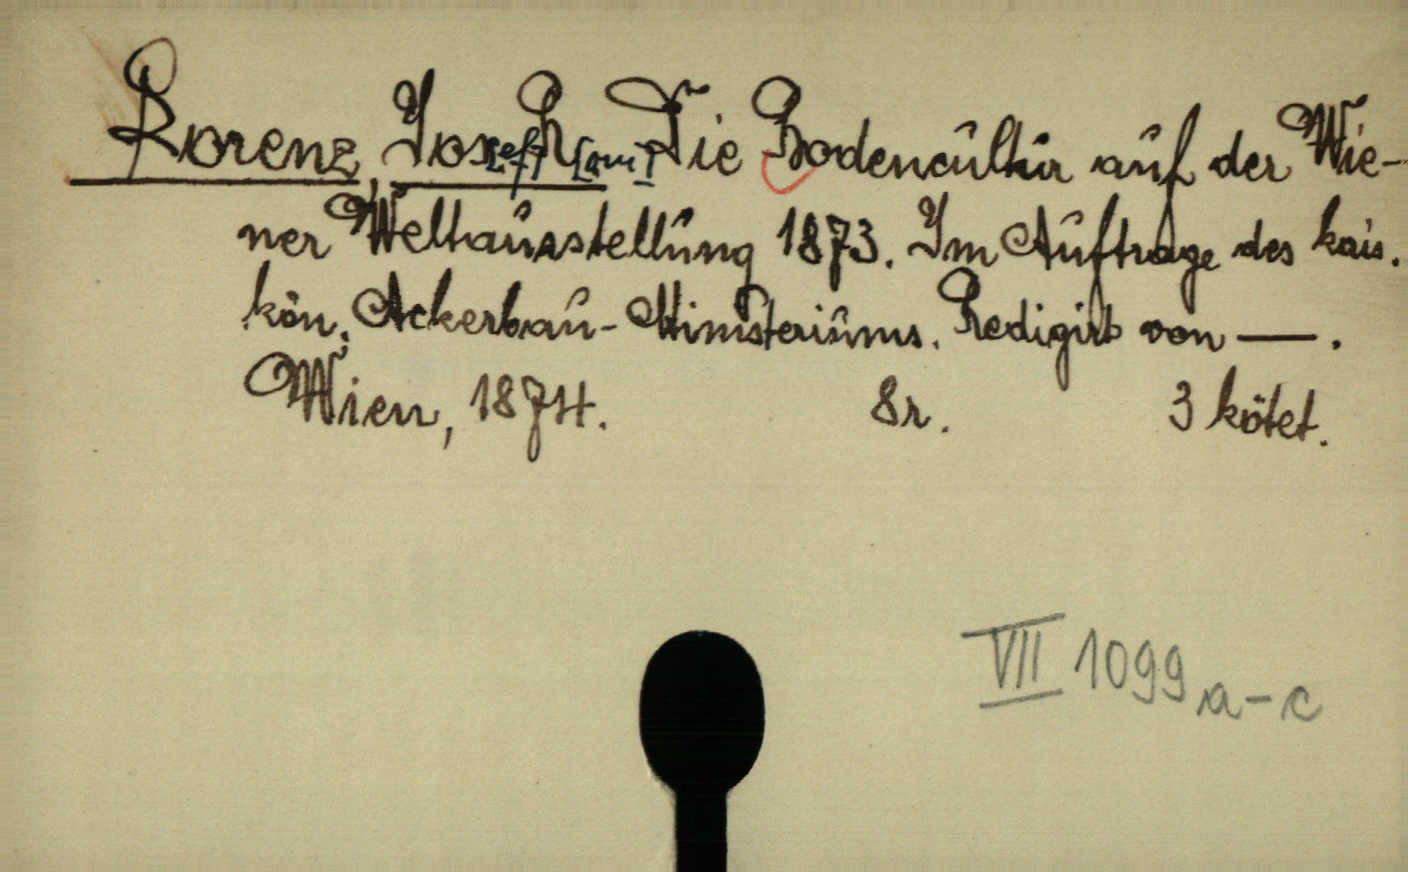 Lorenz, Jos[ef] R[oman] Die Bodencultur auf der Wie-
ner Weltausstellung 1873. Im Auftrage des kais.
kön. Ackerbau-Ministeriums. Redigirt von —.
Wien, 1874. 8r. 3 kötet.
VII 1099 a-c